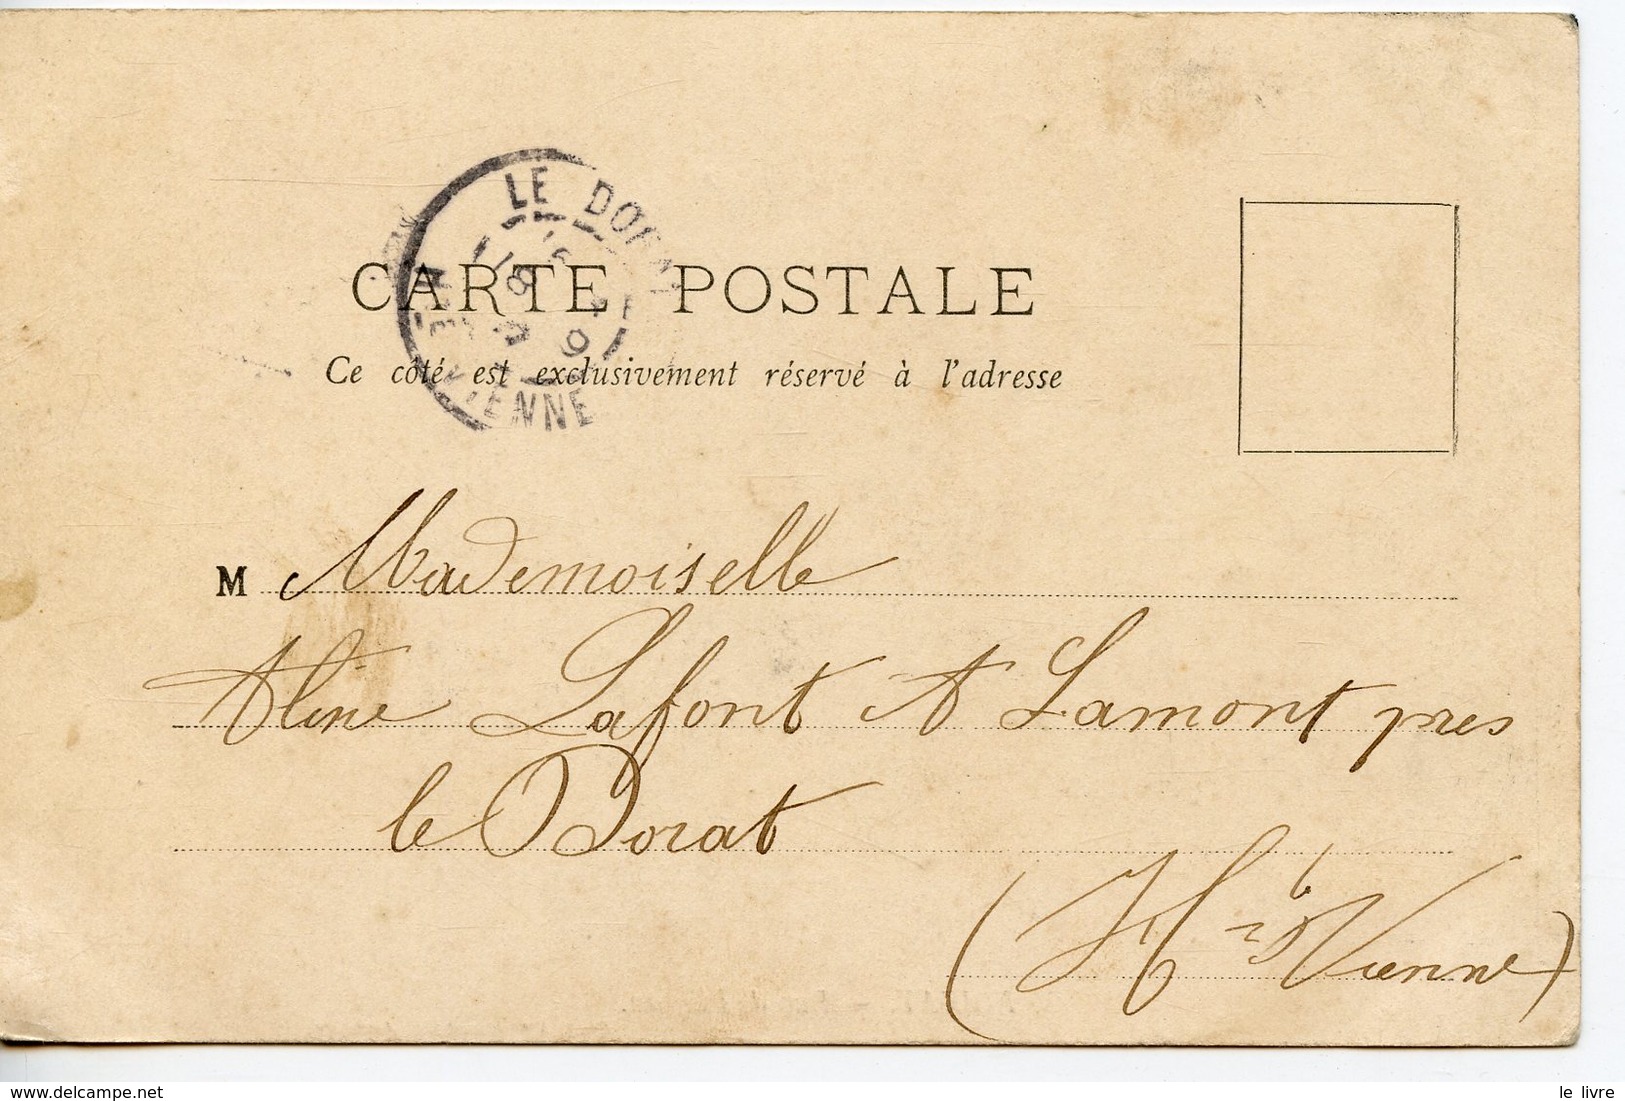 LE DORAT
CARTE POSTALE
Ce côté est exclusivement réservé à l'adresse
VIENNE
M Mademoiselle
Aline Lafont A Lamont pres
le Dorat
(Hte Vienne)
le livre